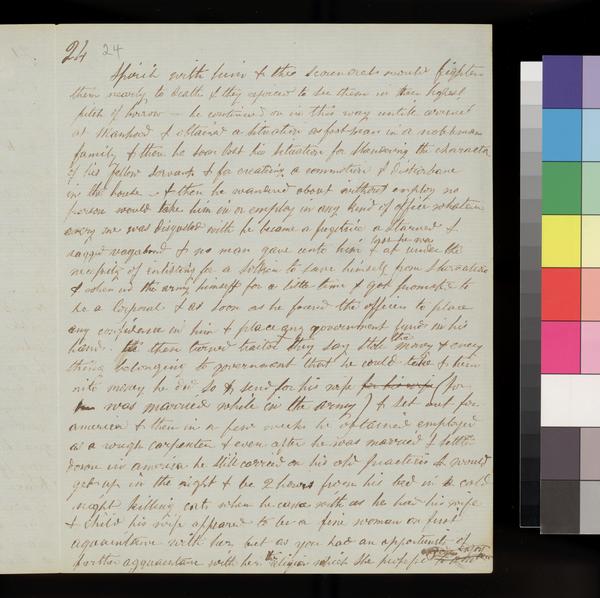 24 24
Spirit with him & this scoundrels would frighten
them nearly to death & they rejoiced to see them in their highest
pitch of horror — he continued on in this way untill arrived
at & obtained a situation as footman in a nobleman
family & there he soon lost his situation for slandering the character
of his fellow servants & for creating a commotion & disturbance
in the house & then he wandered about without employ no
person would take him in or employ in any kind of office whatever
every one was disgusted with he became a fugitive a starved &
ragged vagabond & no man gave unto him & at last he was under the
necessity of enlisting for a soldier to save himself from starvation
& when in the army himself for a little time & got promoted to
be a Corporal & as soon as he found the officers to place
any confidence in him & place any government funds in his
hand then turned traitor they say stole the money & every
thing belonging to government that he could take & turn
into money he did so & send for his wife for his wife (for
was married while in the army) & set out for
america & then in a few weeks he obtained employed
as a rough carpenter & even after he was married & settled
down in america he still carried on his old practices & would
get up in the night & be 2 hours from his bed in a cold
night killing cats when he came with as he had his wife
& child his wife appeared to be a fine woman on first
acquaintance with her but as you had an opportunity of
further acquaintance with her the religion which she profess